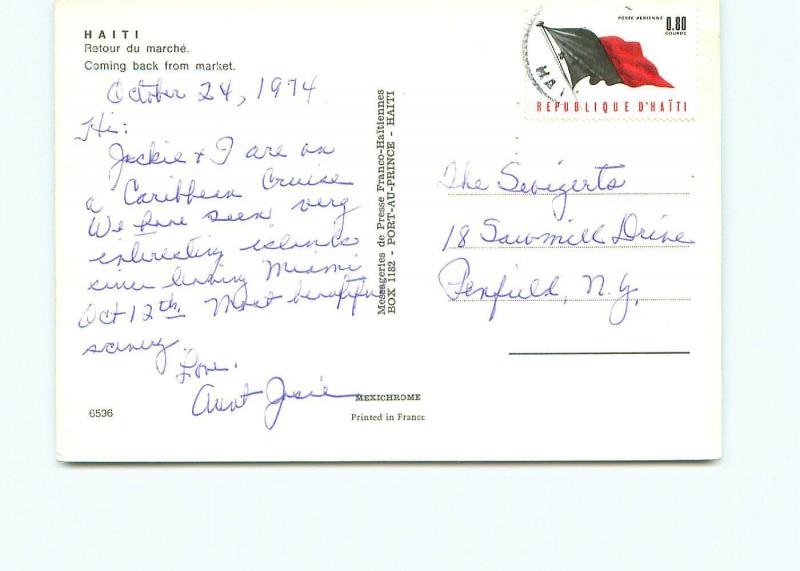 HAITI
Retour du marché.
Coming back from market.
October 24, 1974
Hi:
Jackie & I are on
a Caribbean Cruise
We have seen very
interesting islands
since leaving Miami
Oct 12th. Most beautiful
scenery.
Love.
Aunt Josie
6536
MEXICHROME
Printed in France
Messageries de Presse Franco-Haïtiennes
BOX 1182 - PORT-AU-PRINCE - HAITI
POSTE AERIENNE
0.80
GOURDE
HAI
REPUBLIQUE D'HAÏTI
The
18 Sawmill Drive
Penfield, N.Y.